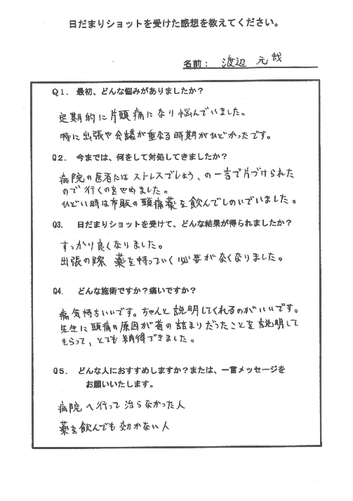 日だまりショットを受けた感想を教えてください。
名前： 渡辺 元哉
Q1． 最初、どんな悩みがありましたか？
定期的に片頭痛になり悩んでいました。
特に出張や会議が重なる時期がひどかったです。
Q2． 今までは、何をして対処してきましたか？
病院の医者にはストレスでしょう、の一言で片づけられた
ので行くのをやめました。
ひどい時は市販の頭痛薬を飲んでしのいでいました。
Q3． 日だまりショットを受けて、どんな結果が得られましたか？
すっかり良くなりました。
出張の際 薬を持っていく必要がなくなりました。
Q4． どんな施術ですか？痛いですか？
痛気持ちいいです。ちゃんと説明してくれるのがいいです。
先生に頭痛の原因が首の詰まりだったことを説明して
もらって、とても納得できました。
Q5． どんな人におすすめしますか？または、一言メッセージを
お願いいたします。
病院へ行って治らなかった人
薬を飲んでも効かない人